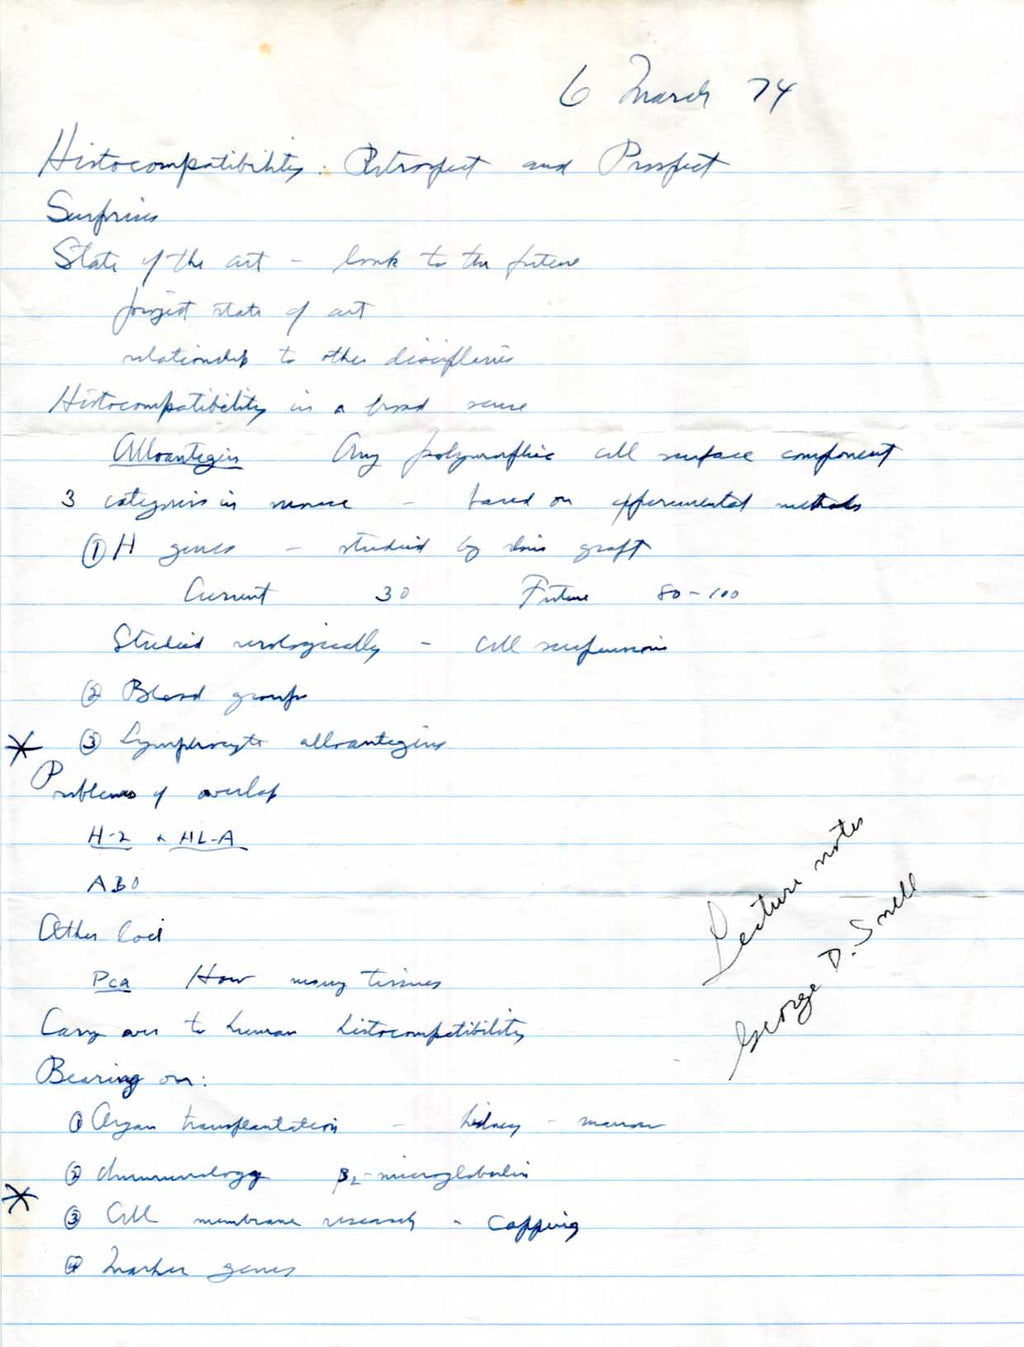 6 March 74
Histocompatibility: Retrospect and Prospect
Surprises
State of the art - look to the future
project state of art
relationship to other disciplines
Histocompatibility in a broad sense
Alloantigens Any polymorphic cell surface component
3 categories in mouse - based on experimental methods
① H genes - studied by skin graft
Current 30 Future 80-100
Studied serologically - cell suspensions
② Blood groups
* ③ Lymphocyte alloantigens
Problems of overlap
H-2 & HL-A
ABO
Other loci
Pca How many tissues
Carry over to human histocompatibility
Bearing on:
① Organ transplantation - kidney - marrow
② Immunology β2-microglobulin
* ③ Cell membrane research - capping
④ Marker genes
Lecture notes
George D. Snell